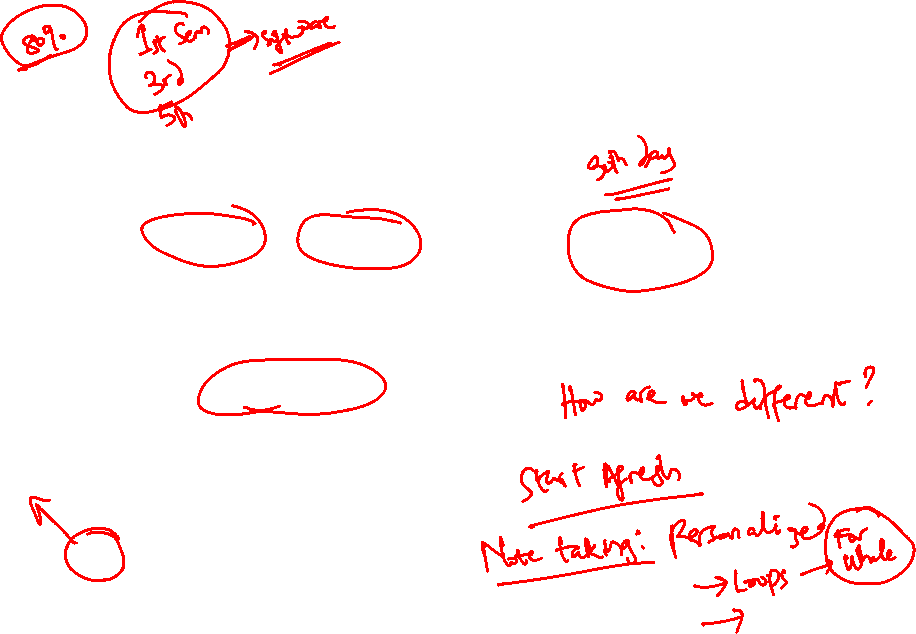 80%.
1st Sem
3rd
5th
How are we different?
Start Afresh
Note taking: Personalized
→ Loops → For
While
→